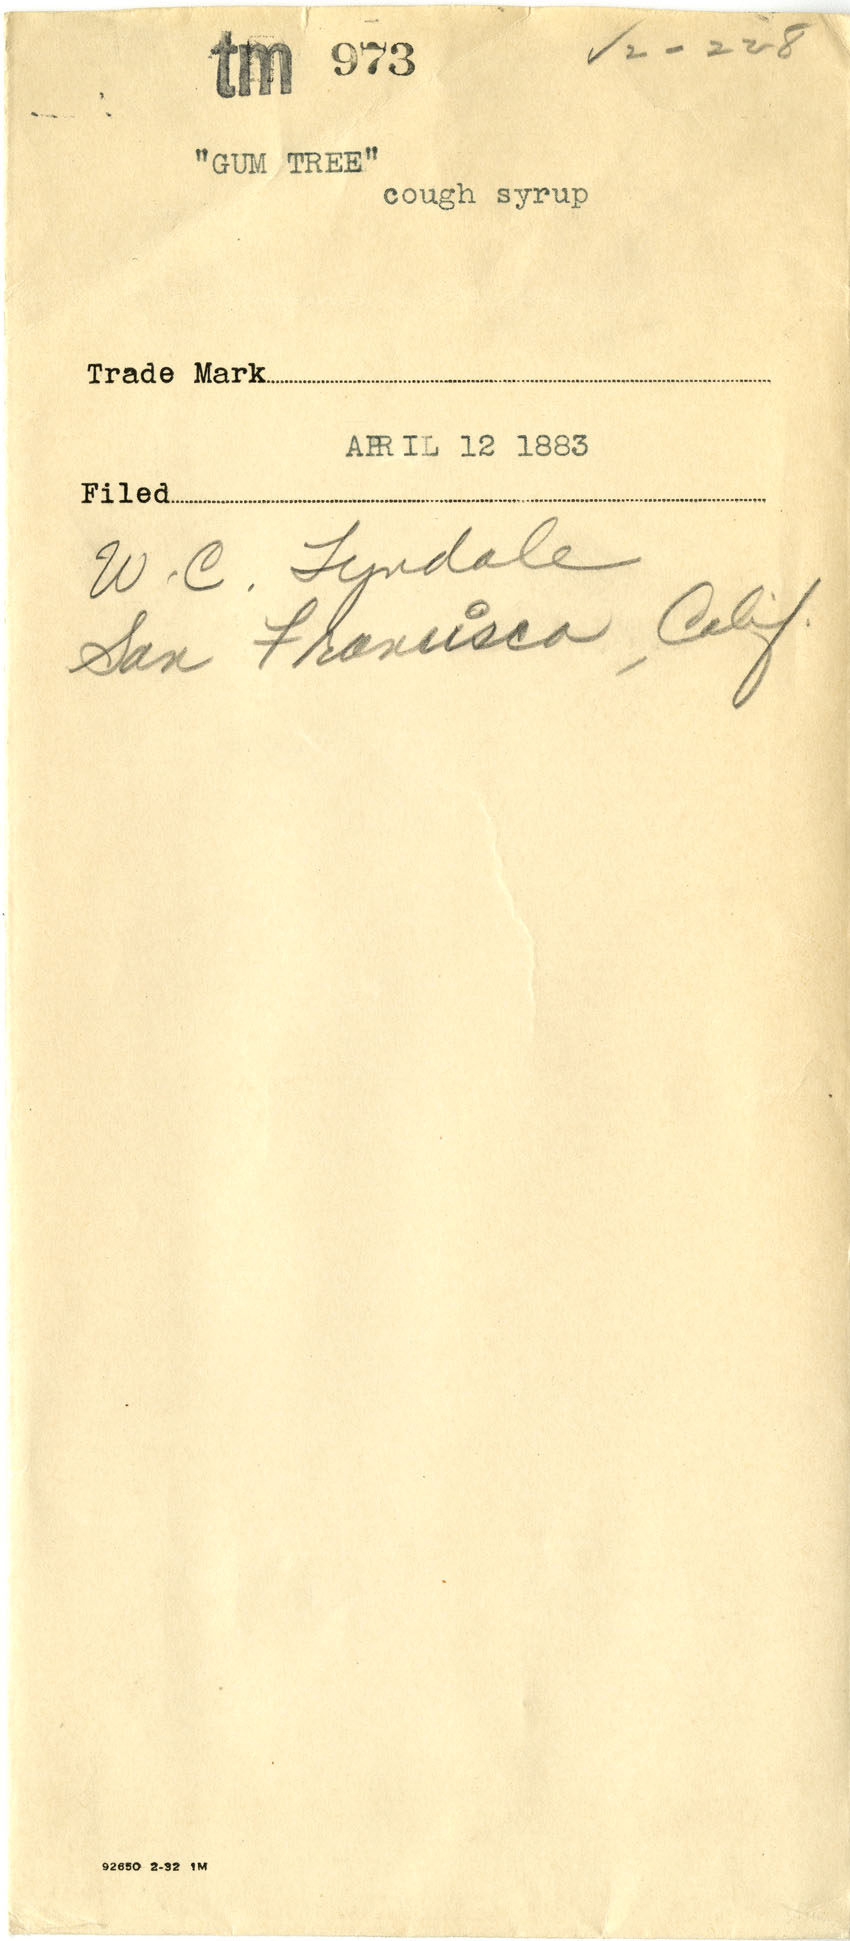 tm 973 √2-228
"GUM TREE"
cough syrup
Trade Mark
APRIL 12 1883
Filed
W. C. Tyndale
San Francisco, Calif.
92650 2-32 1M